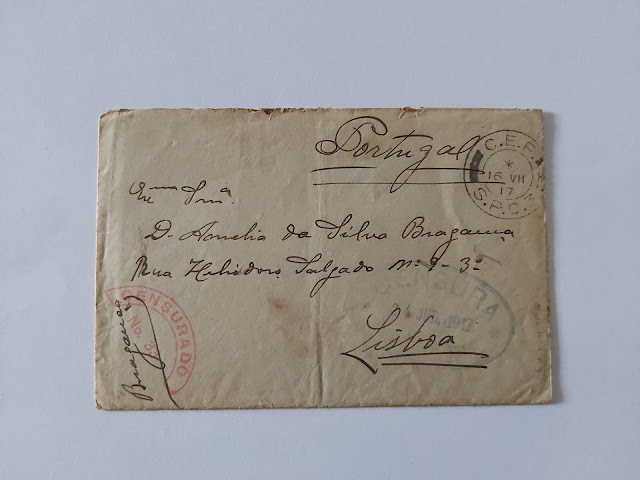 Portugal
C.E.P.
*
16 VII
17
S.P.C.
Exma Snra.
D. Amelia da Silva Bragança
Rua Heliodoro Salgado nº 9-3º
CENSURA
Lisboa
CENSURADO
Nº
Bragança